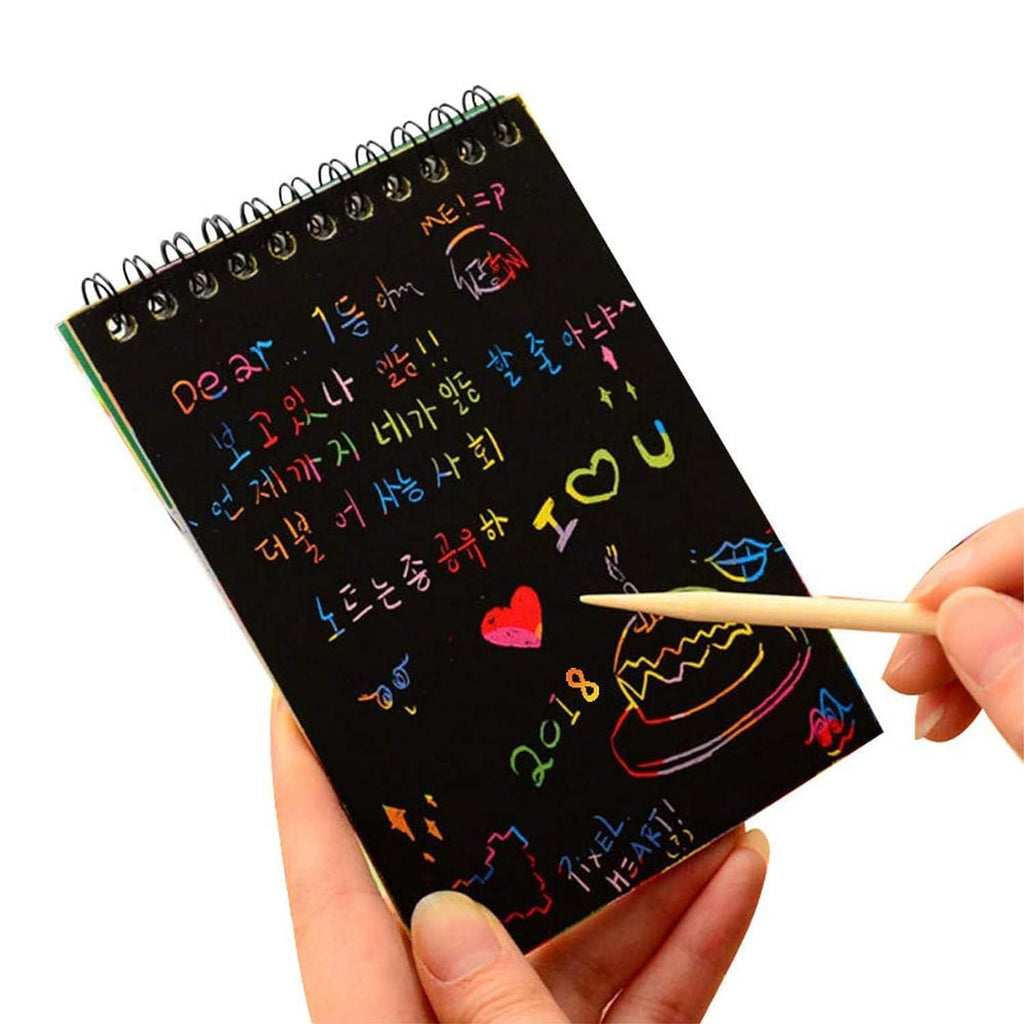 ME! =P
Dear... 1등 아
보고있나 일등!!
언제까지 네가 일등 할 줄 아냐~
더불어 사능 사회
노드는 종 공유하
I ♡ U
2018
PIXEL
HEART!
(?)